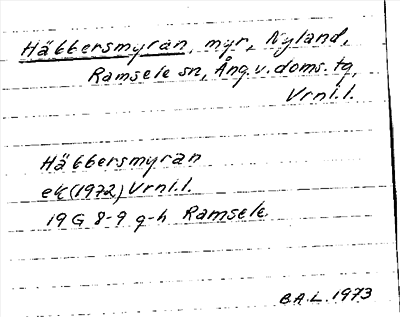 Häbbersmyran, myr, Nyland,
Ramsele sn, Ång.v.doms.tg,
Vrnl.l.
Häbbersmyran
ek (1972) Vrnl.l.
19 G 8-9 g-h Ramsele.
B.A.L. 1973